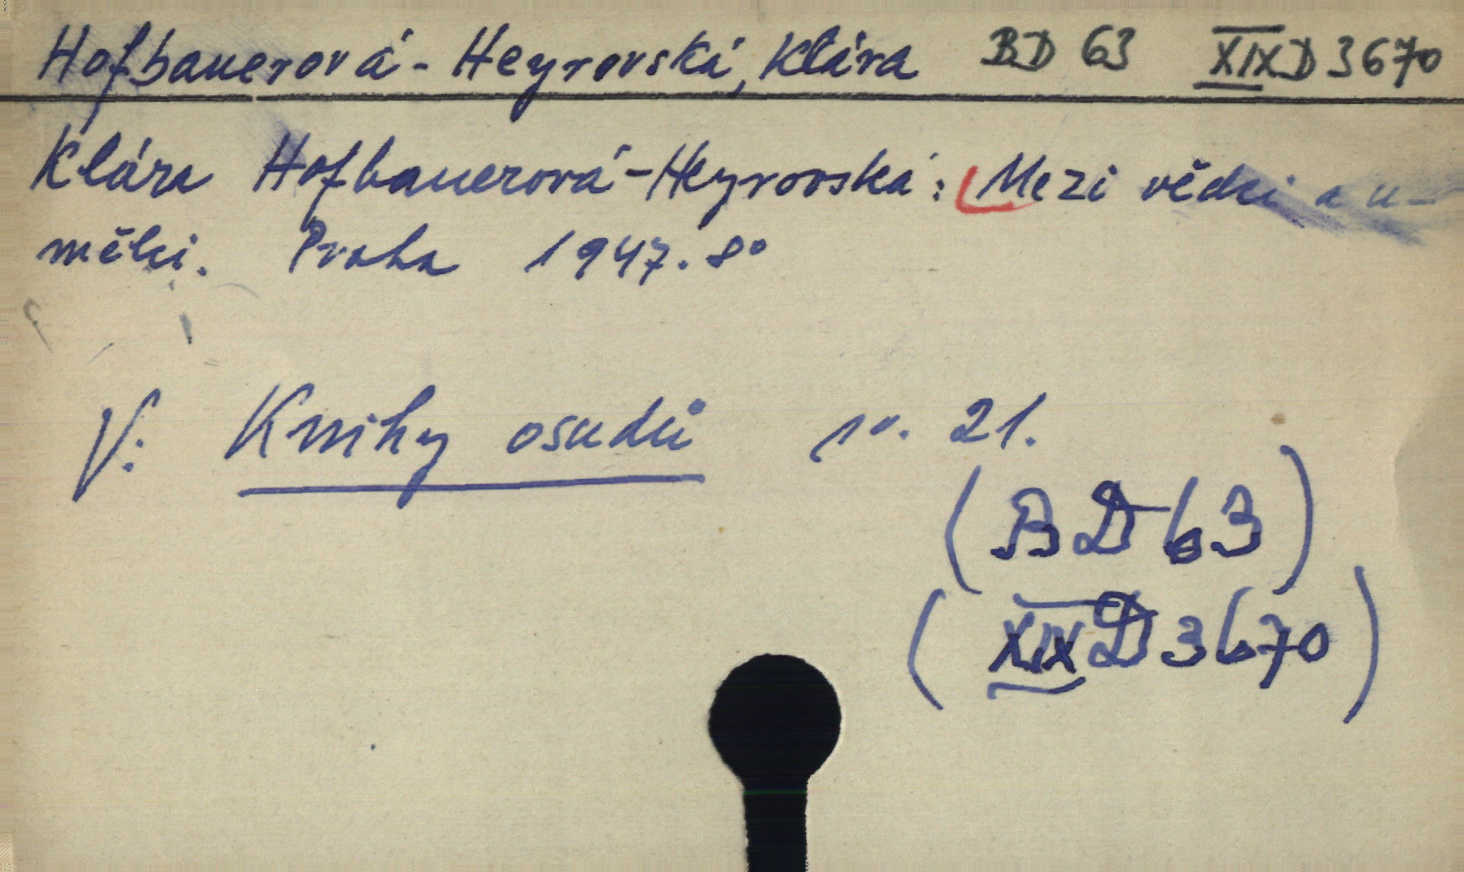 Hofbauerová-Heyrovská, Klára BD 63 XIXD3670
Klára Hofbauerová-Heyrovská: Mezi vědci a u-
mělci. Praha 1947. 8°
V: Knihy osudů sv. 21.
(BD 63)
(XIXD3670)